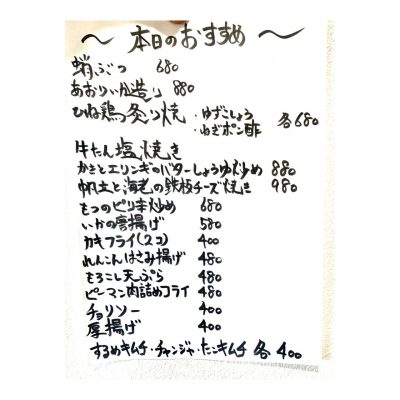 〜 本日のおすすめ 〜
蛸ぶつ 680
あおりいか造り 880
ひね鶏炙り焼 ・ゆずこしょう ・ねぎポン酢 各680
牛たん塩焼き
かきとエリンギのバターしょうゆ炒め 880
帆立と海老の鉄板チーズ焼き 980
もつのピリ辛炒め 680
いかの唐揚げ 580
カキフライ(2コ) 400
れんこんはさみ揚げ 480
もろこし天ぷら 480
ピーマン肉詰めフライ 480
チョリソー 400
厚揚げ 400
するめキムチ・チャンジャ・たこキムチ 各400